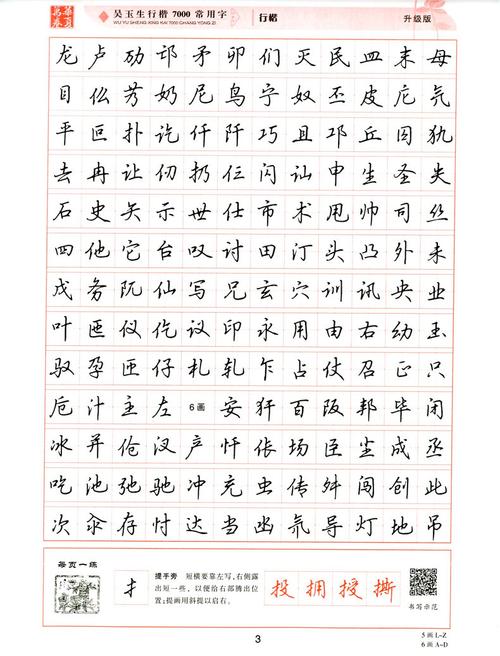 华夏万卷
吴玉生行楷 7000 常用字
WU YU SHENG XING KAI 7000 CHANG YONG ZI
行楷
升级版
龙卢劢邙矛卯们灭民皿末母
目仫艿奶尼鸟宁奴丕皮庀氕
平叵扑讫仟阡巧且邛丘囚犰
去冉让仞扔仨闪讪申生圣失
石史矢示世仕市术甩帅司丝
四他它台叹讨田汀头凸外未
戊务阢仙写兄玄穴训讯央业
叶匜仪仡议印永用由右幼玉
驭孕匝仔札轧乍占仗召正只
卮汁主左6画安犴百阪邦毕闭
冰并伧汊产忏伥场臣尘成丞
吃池弛驰冲充虫传舛闯创此
次汆存忖达当凼氘导灯地吊
每页一练
扌
提手旁 短横要靠左写，右侧露
出短一些，以便给右部腾出位
置；提画用斜提以启右。
投拥授撕
书写示范
3
5画L-Z
6画A-D